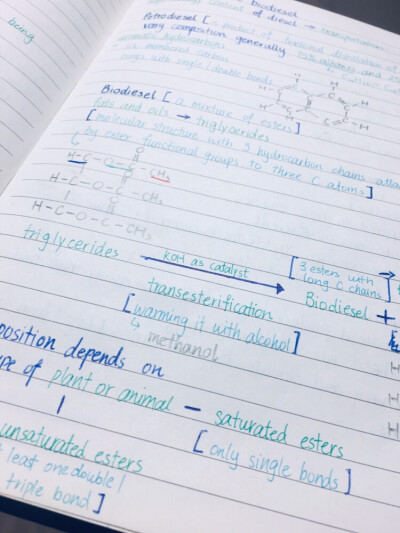 being
biodiesel
content of diesel → transportation
Petrodiesel [a product of fractional distillation of
vary composition generally 75% alkanes and 25%
aromatic hydrocarbons
↳ six membered carbon
rings with single/double bonds
Biodiesel [a mixture of esters]
fats and oils → triglycerides
[molecular structure with 3 hydrocarbon chains atta
by ester functional groups to three C atoms]
O
H-C-O-C-CH₃
O
H-C-O-C-CH₃
O
H-C-O-C-CH₃
triglycerides KOH as catalyst [3 esters with long C chains]
transesterification Biodiesel +
[warming it with alcohol]
↳ methanol
H
H
H
position depends on
ype of plant or animal - saturated esters
[only single bonds]
unsaturated esters
t least one double/
triple bond]